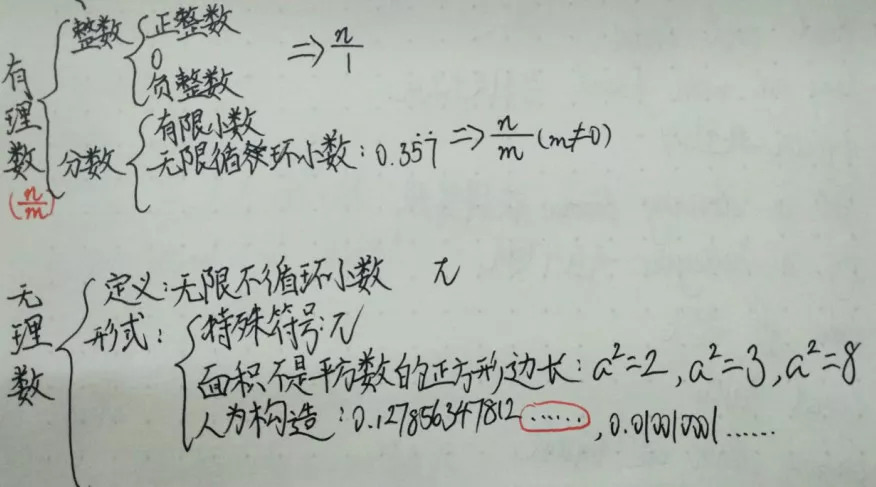 整数 正整数
0 ⇒ n/1
负整数
有理数 (n/m)
有限小数
分数 无限循环小数: 0.35̇7̇ ⇒ n/m (m≠0)
无理数
定义: 无限不循环小数 π
形式: 特殊符号: π
面积不是平方数的正方形边长: a²=2, a²=3, a²=8
人为构造: 0.127856347812……, 0.010010001……